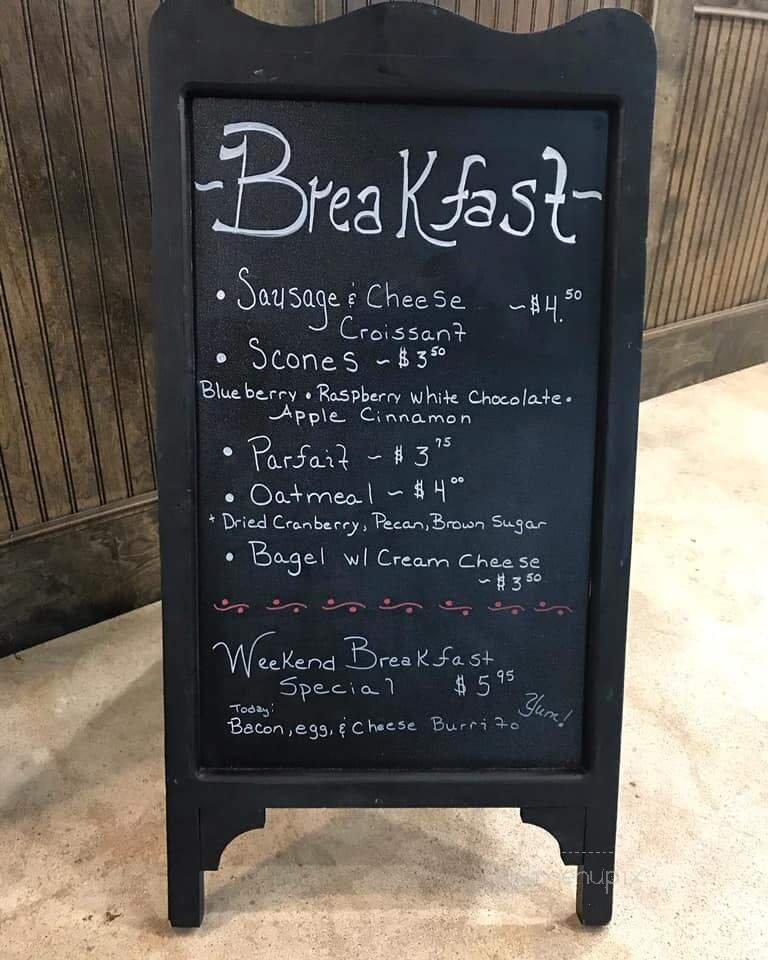 ~Breakfast~
• Sausage & Cheese ~$4.50
Croissant
• Scones ~ $3 50
Blueberry • Raspberry White Chocolate •
Apple Cinnamon
• Parfait ~ $3 75
• Oatmeal ~ $4 00
+ Dried Cranberry, Pecan, Brown Sugar
• Bagel w/ Cream Cheese
~ $3 50
Weekend Breakfast
Special $5 95
Today: Yum!
Bacon, egg, & Cheese Burrito